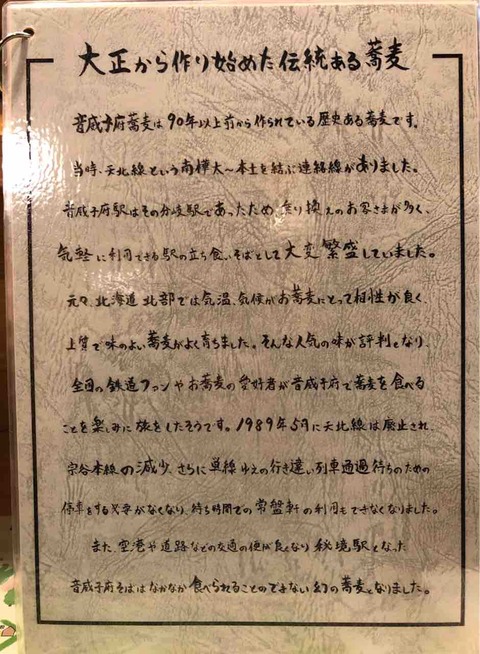 大正から作り始めた伝統ある蕎麦
音威子府蕎麦は90年以上前から作られている歴史ある蕎麦です。
当時、天北線という南樺太〜本土を結ぶ連絡線がありました。
音威子府駅はその分岐駅であったため、乗り換えのお客さまが多く、
気軽に利用できる駅の立ち食いそばとして大変繁盛していました。
元々、北海道北部では気温、気候がお蕎麦にとって相性が良く、
上質で味のよい蕎麦がよく育ちました。そんな人気の味が評判となり、
全国の鉄道ファンやお蕎麦の愛好者が音威子府で蕎麦を食べる
ことを楽しみに旅をしたそうです。1989年5月に天北線は廃止され
宗谷本線の減少、さらに単線ゆえの行き違い列車通過待ちのための
停車をする必要がなくなり、待ち時間での常盤軒の利用もできなくなりました。
また、空港や道路などの交通の便が良くなり秘境駅となった
音威子府そばはなかなか食べられることのできない幻の蕎麦となりました。